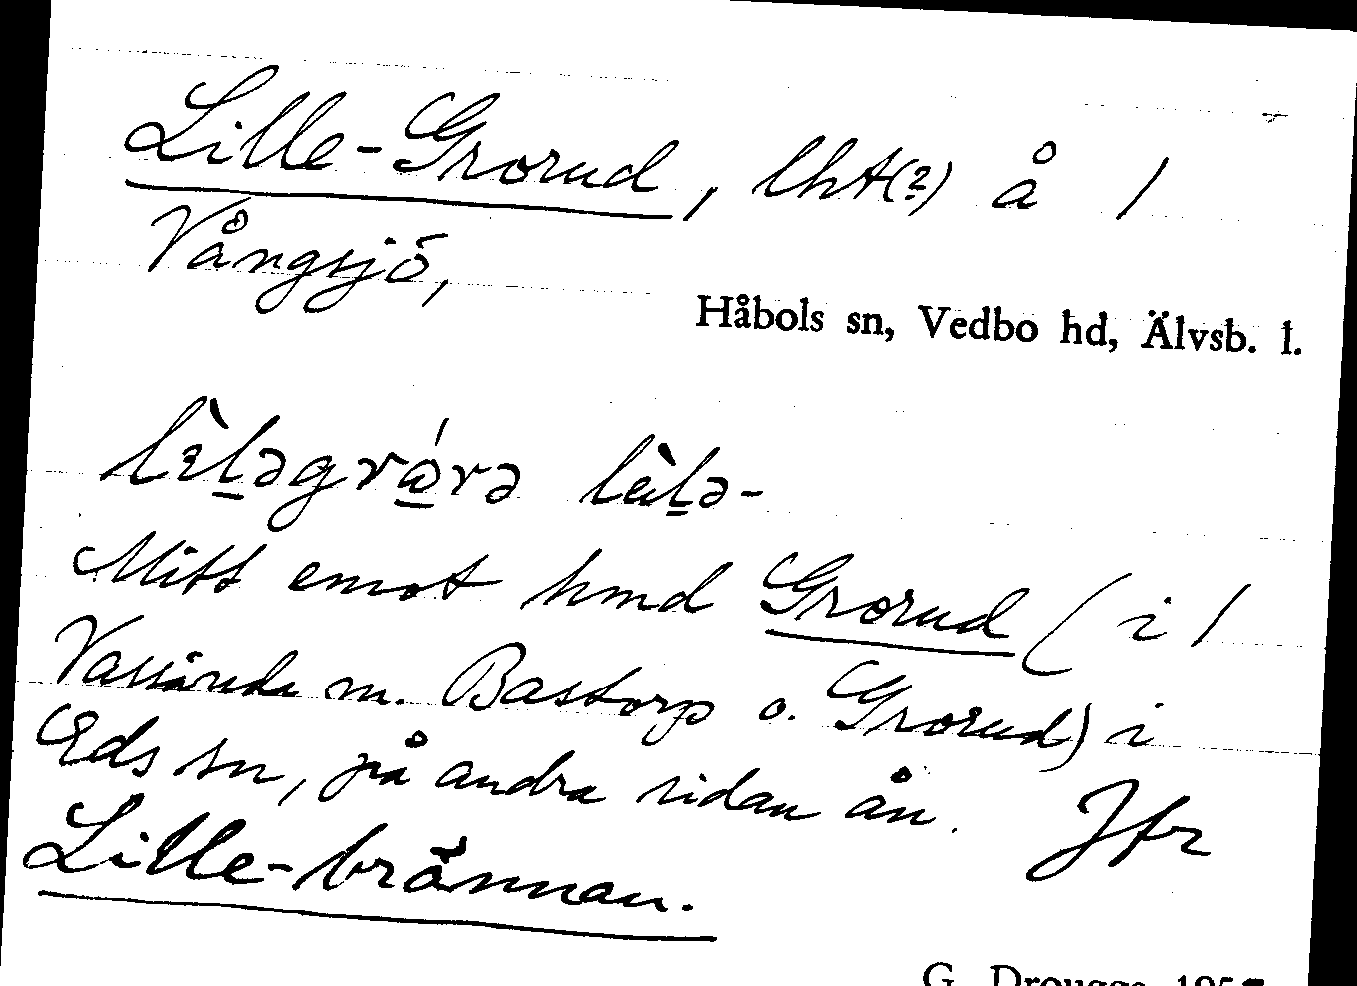 Lille-Grorud, lht(?) å /
Vångsjö,
Håbols sn, Vedbo hd, Älvsb. l.
lɛ̀l̠əgrǽ̠rə lèl̠ə-
Mitt emot hmd Grorud (i /
Vassända m. Bastorp o. Grorud) i
Eds sn, på andra sidan ån. Jfr
Lille-brännan.
G. Drougge